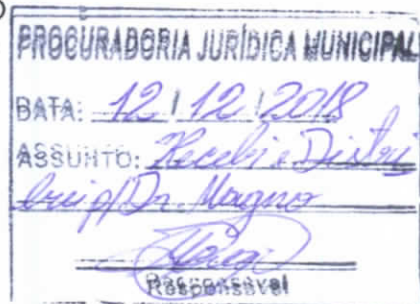 PROCURADORIA JURÍDICA MUNICIPAL
DATA: 12 / 12 / 2018
ASSUNTO: Recebi e Distri
bui p/ Dr. Magno
Responsável